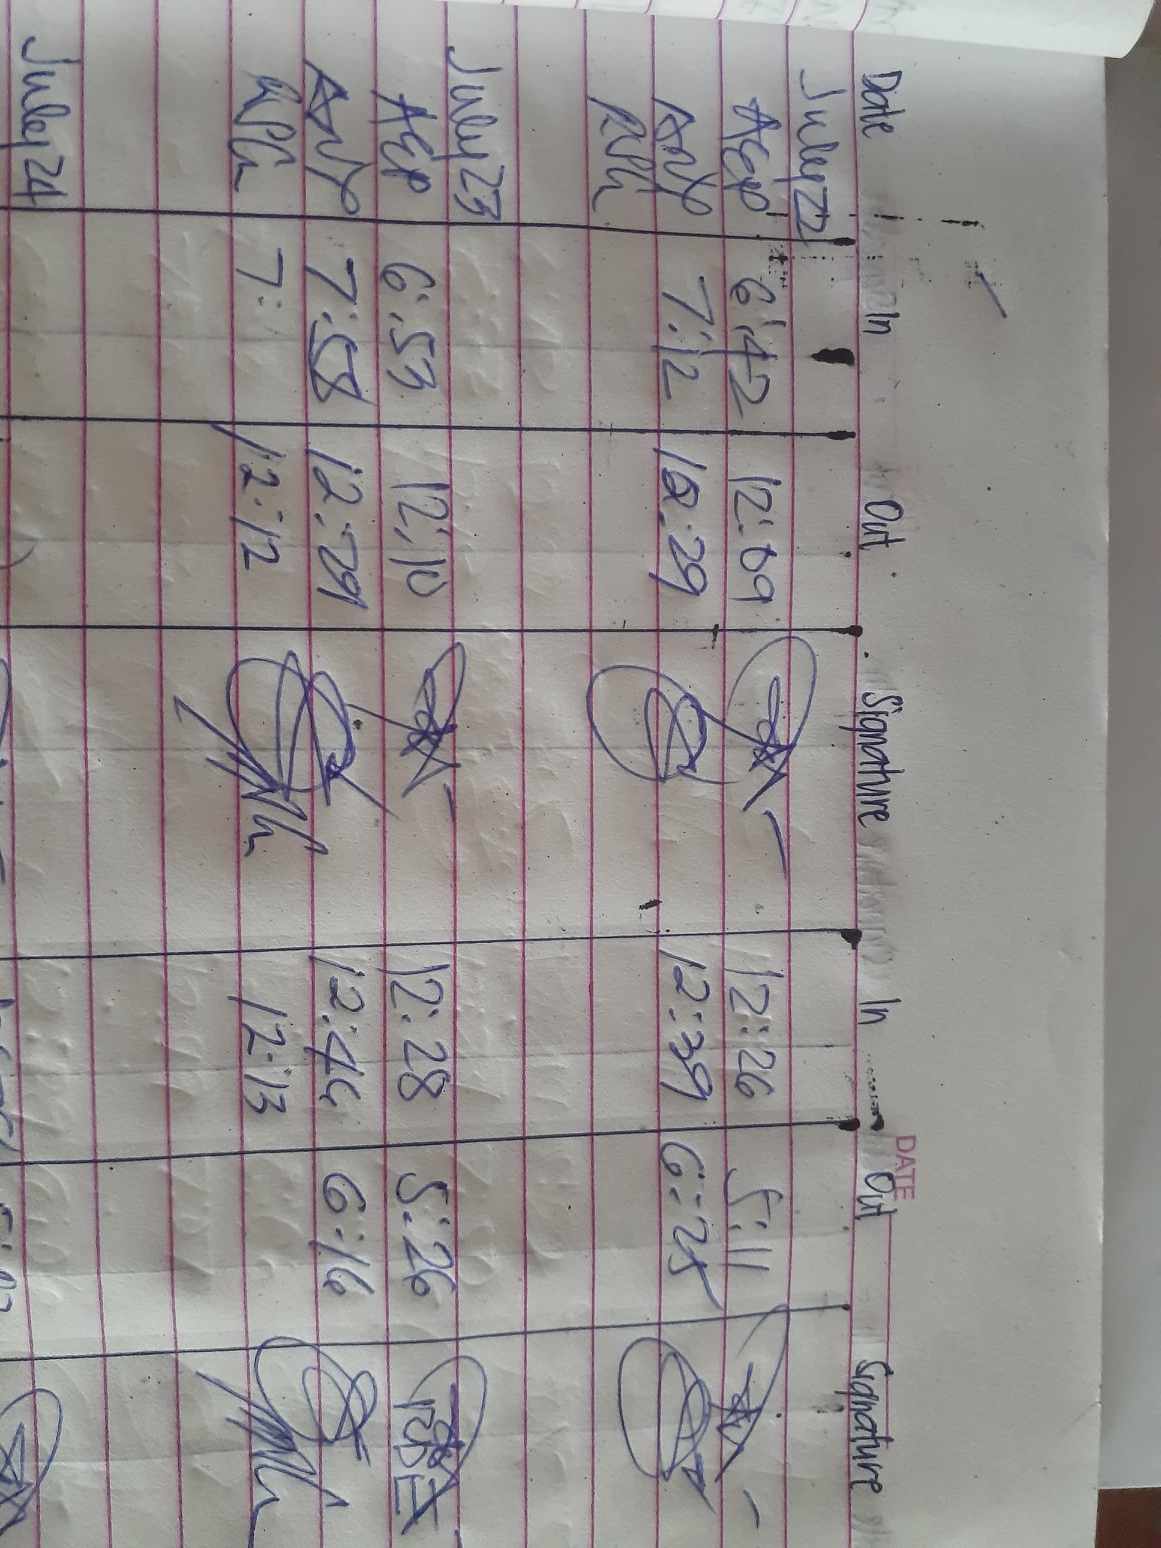 DATE
Date In Out Signature In Out Signature
July 22
AEP 6:42 12:09 12:26 5:11
7:12 12:29 12:39 6:25
July 23
AEP 6:53 12:10 12:28 5:26
7:58 12:29 12:44 6:16
7: 12:12 12:13
July 24